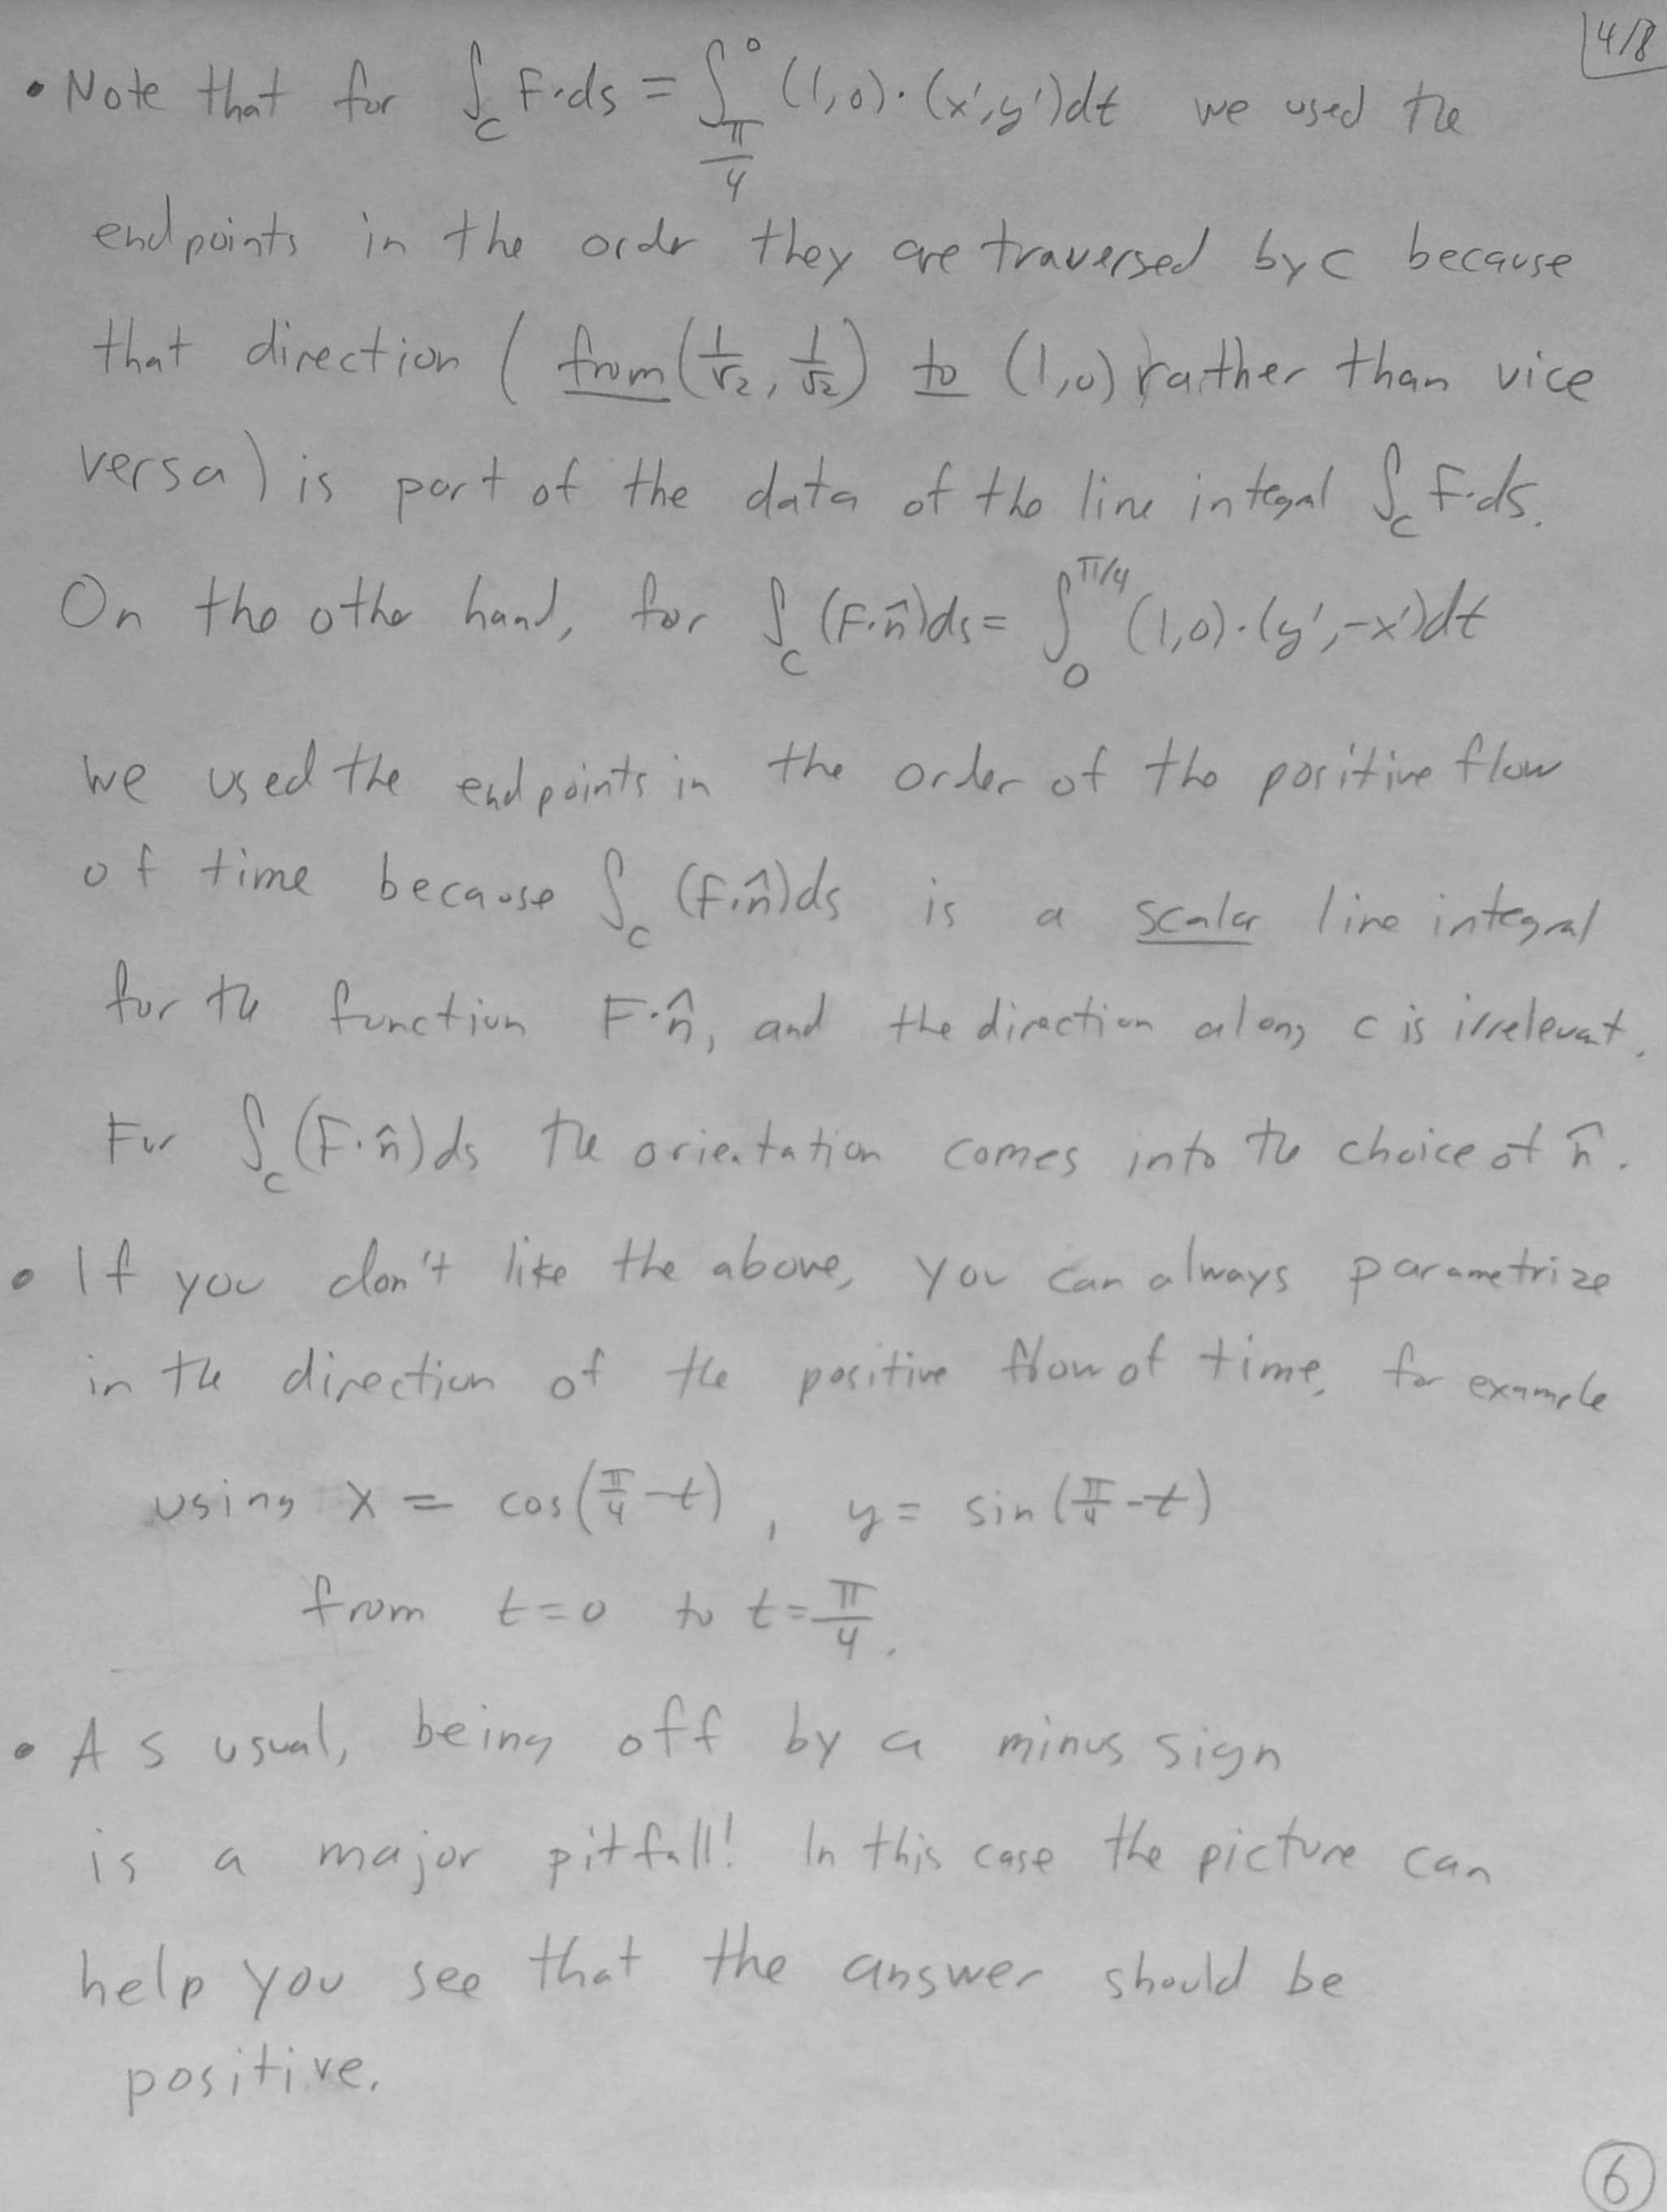 4/8
• Note that for ∫_C F·ds = ∫_{π/4}^0 (1,0)·(x',y')dt we used the
endpoints in the order they are traversed by C because
that direction (from (1/√2, 1/√2) to (1,0) rather than vice
versa) is part of the data of the line integral ∫_C F·ds.
On the other hand, for ∫_C (F·n̂)ds = ∫_0^{π/4} (1,0)·(y',-x')dt
we used the endpoints in the order of the positive flow
of time because ∫_C (F·n̂)ds is a scalar line integral
for the function F·n̂, and the direction along C is irrelevant.
For ∫_C (F·n̂)ds the orientation comes into the choice of n̂.
• If you don't like the above, you can always parametrize
in the direction of the positive flow of time, for example
using x = cos(π/4 - t), y = sin(π/4 - t)
from t=0 to t=π/4.
• As usual, being off by a minus sign
is a major pitfall! In this case the picture can
help you see that the answer should be
positive.
6